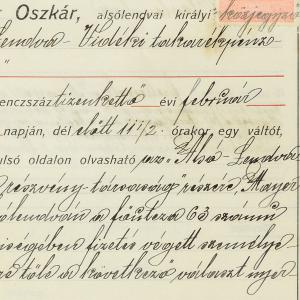 Oszkár, alsólendvai királyi közjegyző
Lendva-Vidéki takarékpénz
"
enczszáz tizenkettő évi február
napján, dél előtt 11 1/2 órakor egy váltót,
ulsó oldalon olvasható "Alsó Lendva
részvény-társaság" részére, Mayer
lendván a főutcza 63 számú
iségében fizetés végett személye
tőle a következő választ nyer